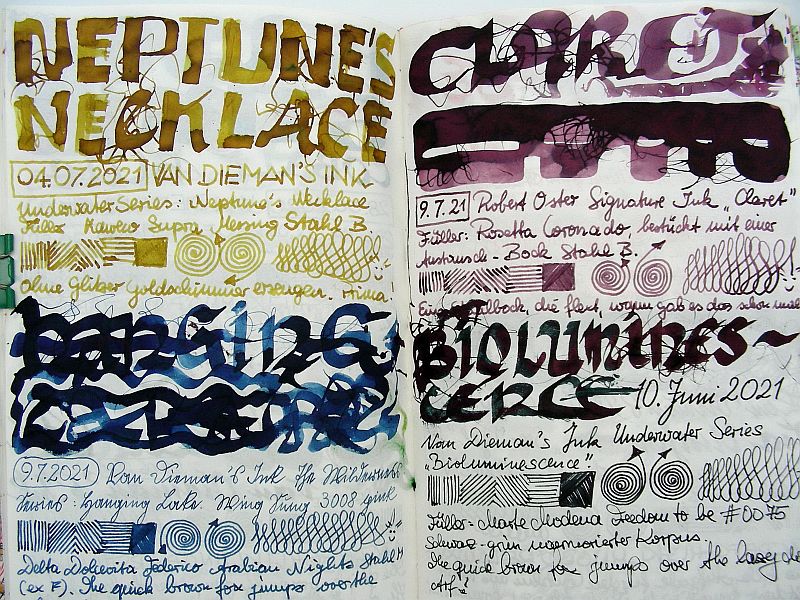 NEPTUNE'S
NECKLACE
04.07.2021 VAN DIEMAN'S INK
Underwater Series: Neptune's Necklace
Füller Kaweco Supra Messing Stahl B.
Ohne Glitzer Goldschimmer erzeugen. Prima!
HANGING
9.7.2021 Van Dieman's Ink The Wilderness
Series: Hanging Lake. Wing Sung 3008 pink
Delta Dolcevita Federico Arabian Nights Stahl M
(ex F). The quick brown fox jumps over the
CLARET
9.7.21 Robert Oster Signature Ink „Claret"
Füller: Rosetta Coronado, bestückt mit einer
Austausch-Bock Stahl B.
Eine Stahlbock, die flext, wann gab es das schon mal
BIOLUMINES~
CENCE 10. Juni 2021
Van Dieman's Ink Underwater Series
„Bioluminescence".
Füller: Marte Modena Freedom to be #0075
Schwarz-grün marmorierter Korpus.
The quick brown fox jumps over the lazy do